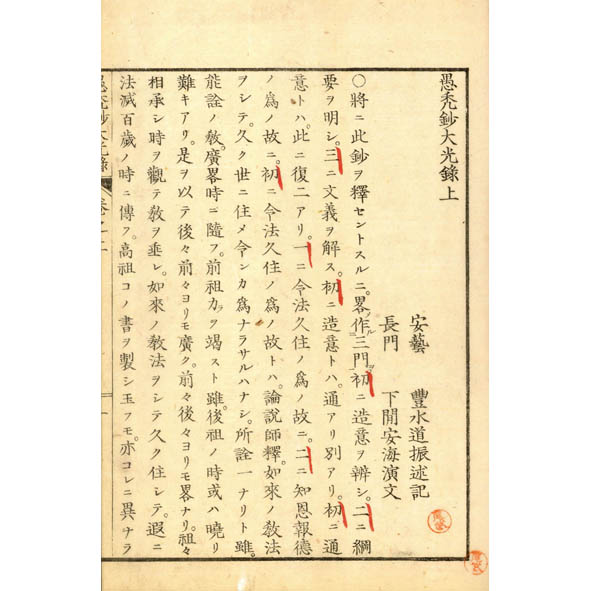 愚禿鈔大光錄上
安藝　豐水道振述記
長門　下閒安海演文
〇將ニ此鈔ヲ釋セントスルニ。畧シテ作ル三門ヲ。初ニ造意ヲ辨シ。二ニ綱
要ヲ明シ。三ニ文義ヲ解ス。初ニ造意トハ。通アリ別アリ。初ニ通
意トハ。此ニ復二アリ。一ニ令法久住ノ爲ノ故ニ。二ニ知恩報德
ノ爲ノ故ニ。初ニ令法久住ノ爲ノ故トハ。論說師釋。如來ノ敎法
ヲシテ。久ク世ニ住メ令ンカ爲ナラサルハナシ。所詮一ナリト雖。
能詮ノ敎。廣畧時ニ隨フ。前祖力ヲ竭スト雖。後祖ノ時或ハ曉リ
難キアリ。是ヲ以テ後々前々ヨリモ廣ク。前々後々ヨリモ畧ナリ。祖々
相承シ時ヲ觀テ敎ヲ垂レ。如來ノ敎法ヲシテ久ク住シテ。遐ニ
法滅百歲ノ時ニ傳フ。高祖コノ書ヲ製シ玉フモ。亦コレニ異ナラ
愚禿鈔大光錄　卷之上